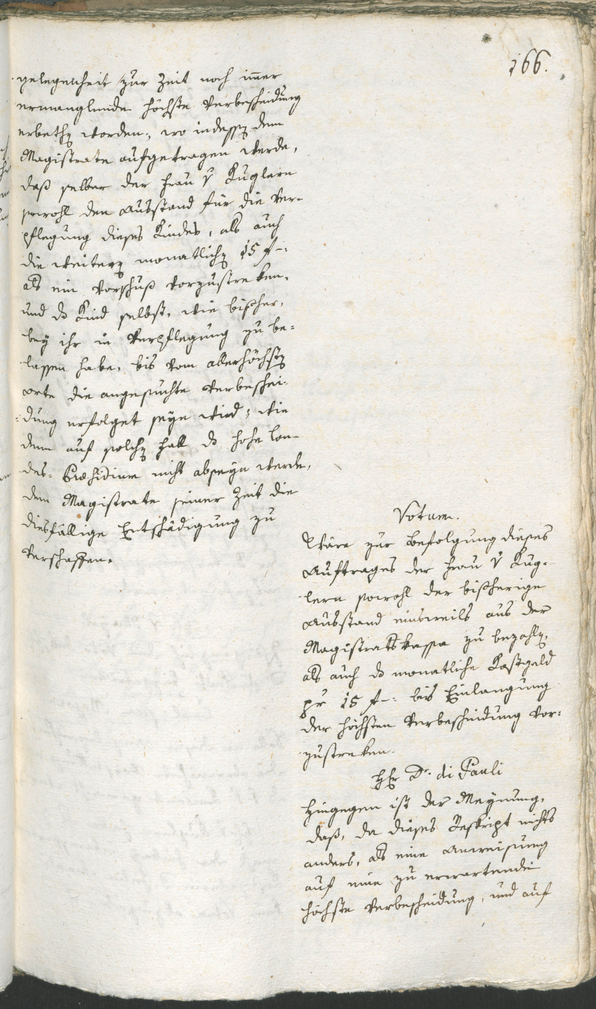 166.
gelegenheit zur Zeit noch im̅er
ermanglende höchste Verbescheidung
erbethen worden, wo indessen dem
Magistrate aufgetragen werde,
daß selber der Frau v Kuglern
sowohl den Ausstand für die Ver-
pflegung dieses Kindes, als auch
die weitern monatlichen 15 f-:
als ein Vorschuß vorzustreken,
und das Kind selbst, wie bisher,
bey ihr in Verpflegung zu be-
lassen habe, bis vom allerhöchsten
Orte die angesuchte Verbeschei-
dung erfolget seyn wird; wie
dem auf solchen Fall das hohe lan-
des- Præsidium nicht abseyn werde,
dem Magistrate seiner Zeit die
diesfällige Entschädigung zu
verschaffen.
Votum.
Wäre zur Befolgung dieses
Auftrages der Frau v Kug-
lern sowohl der bisherige
Ausstand einsweils aus der
Magistratskassa zu bezahlen,
als auch das monatliche Kostgeld
pr 15 f-: bis Einlangung
der höchsten Verbescheidung vor-
zustreken.
Hr Dr. di Pauli
hingegen ist der Meynung,
daß, da dieses Reskript nichts
anders, als eine Anweisung
auf eine zu erwartende
höchste Verbescheidung, und auf